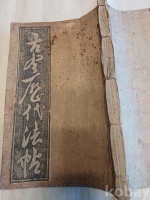 古寶歷代法帖
kobay